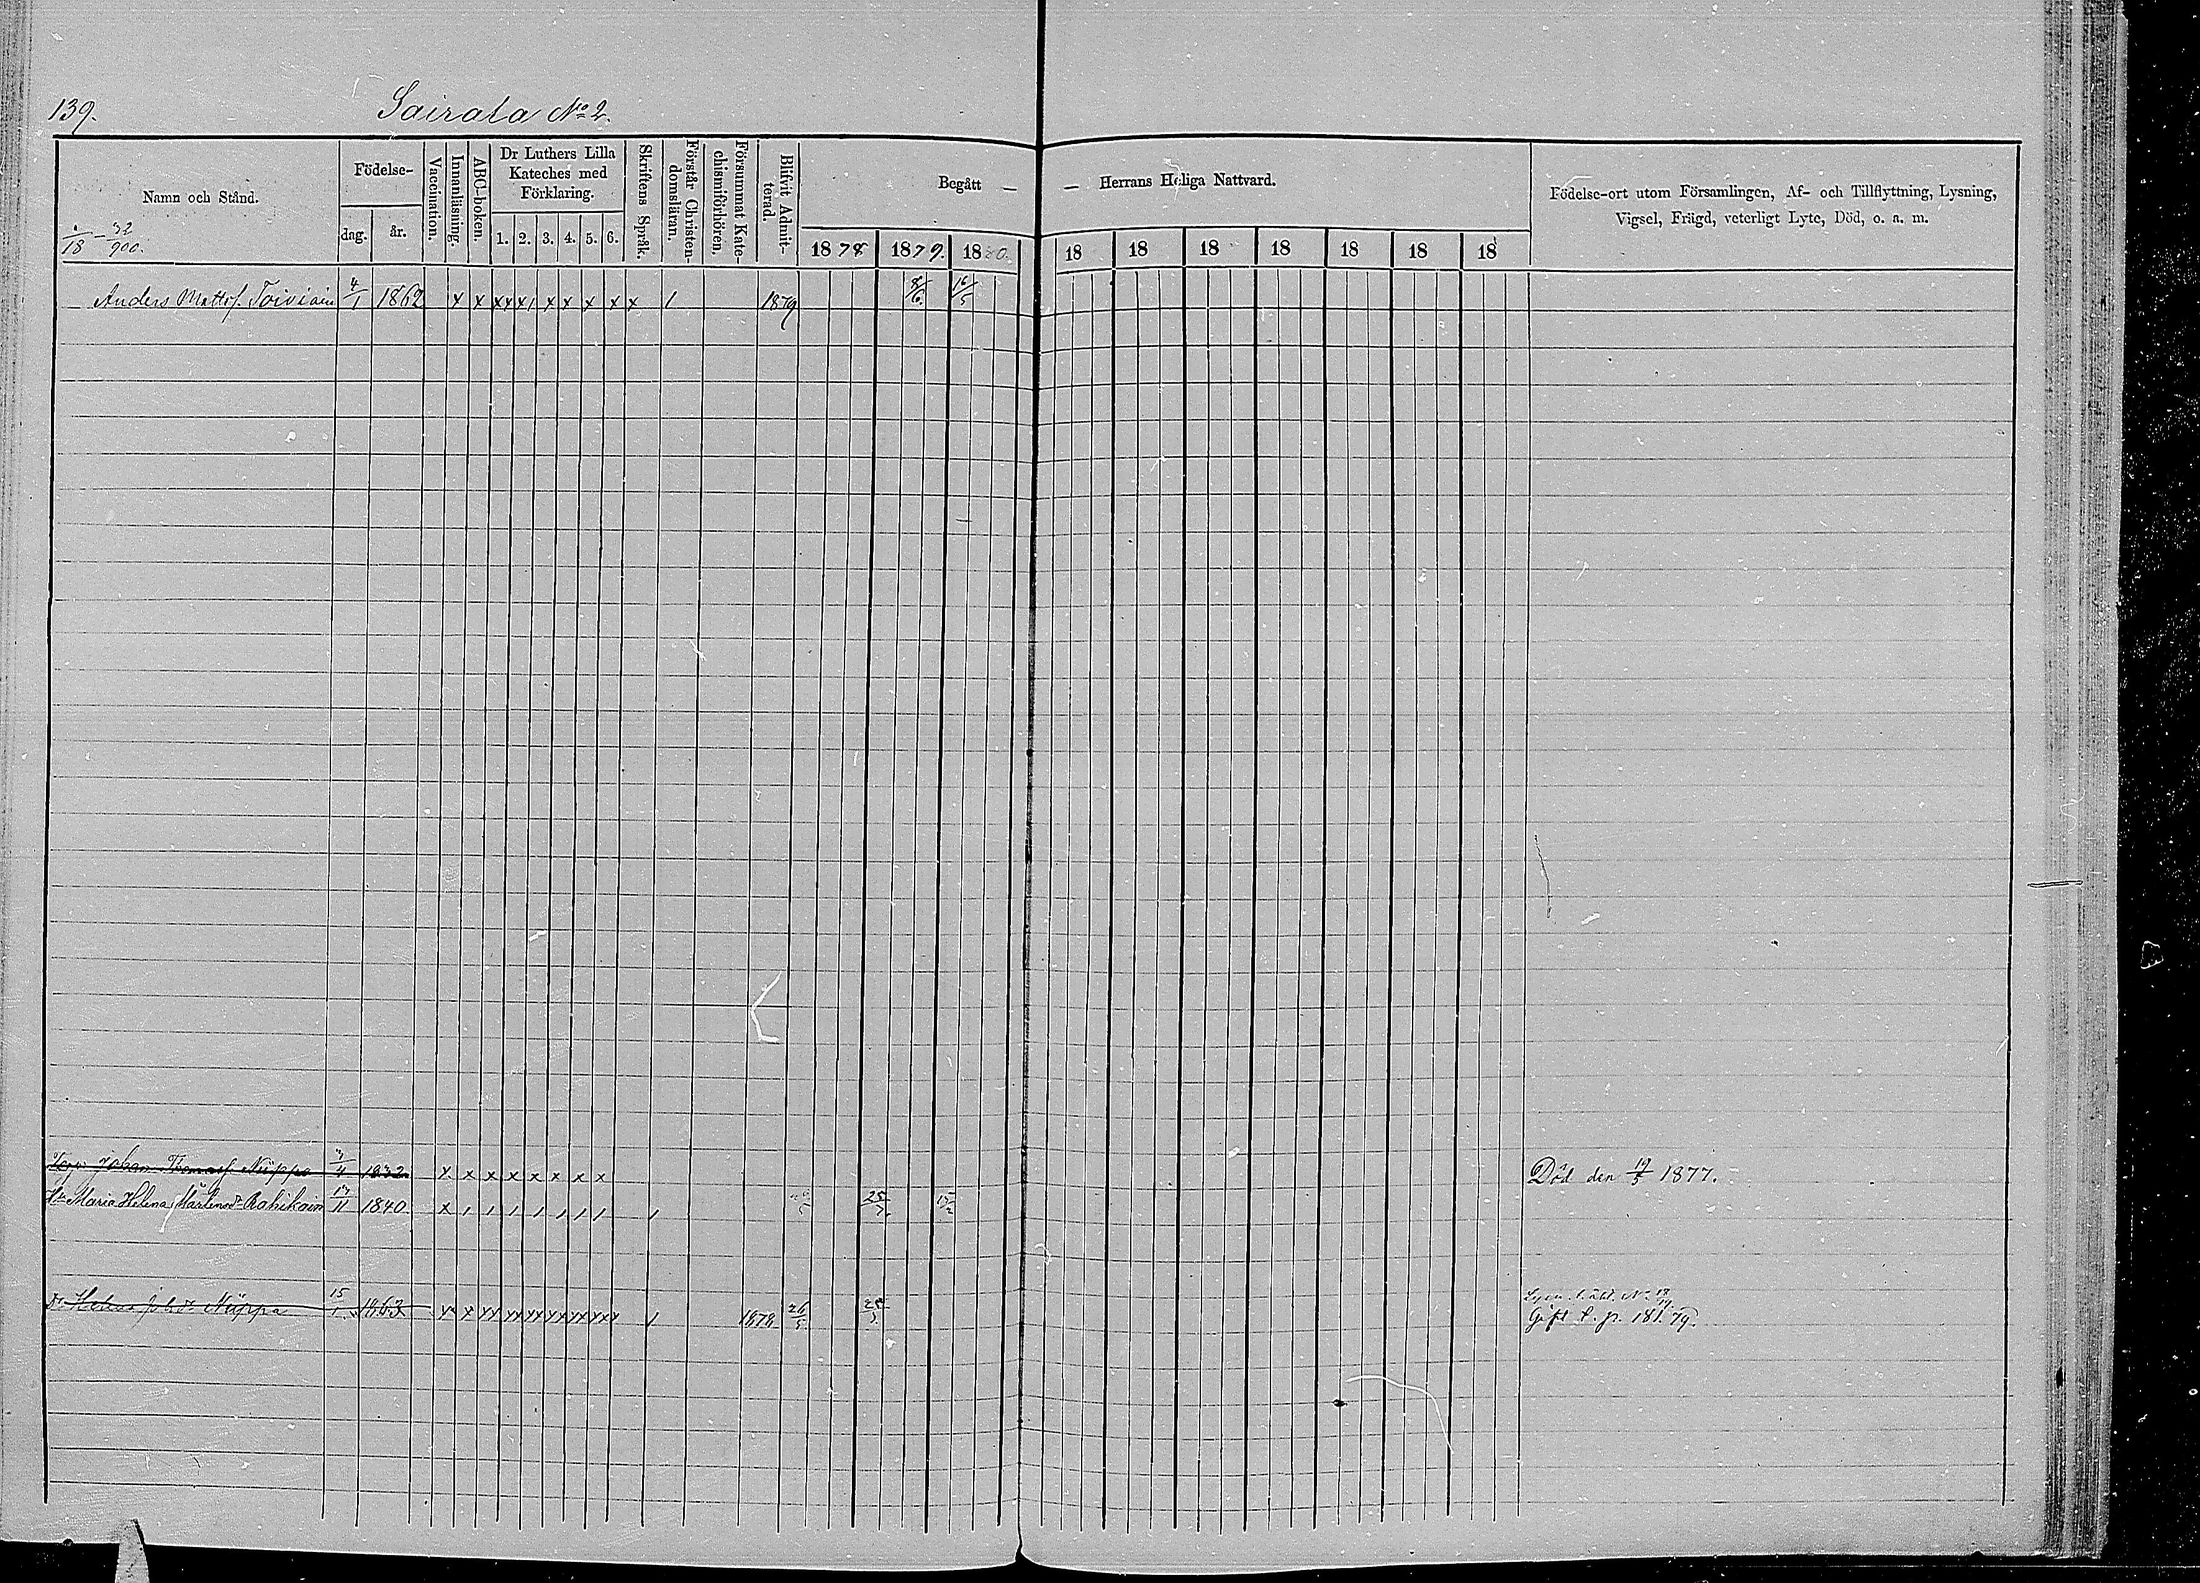 139.
Sairala No 2.
Namn och Stånd.
Födelse-
dag.
år.
Vaccination.
Innanläsning.
ABC-boken.
Dr Luthers Lilla
Kateches med
Förklaring.
1. 2. 3. 4. 5. 6.
Skriftens Språk.
Förstår Christen-
domsläran.
Försummat Kate-
chismiförhören.
Blifvit Admit-
terad.
Begått — — Herrans Heliga Nattvard.
1878 1879. 1880. 18 18 18 18 18 18 18
Födelse-ort utom Församlingen, Af- och Tillflyttning, Lysning,
Vigsel, Frägd, veterligt Lyte, Död, o. a. m.
Anders Mattsf. Toiviain 4/1 1862 x x xx x1 x x x x x 1 1879 8/6. 16/5
Johan Thomasf. Nuppo 1832 x x x x x x x x Död den 19/5 1877.
Maria Helena Mårtensdr Rahikain 17/11 1840. x 1 1 1 1 1 1 1 1 25/7.
Dr Helena Joh.dr Nuppo 15/1 1863 1 1878 26/5
Gift t. p. 181. 79.